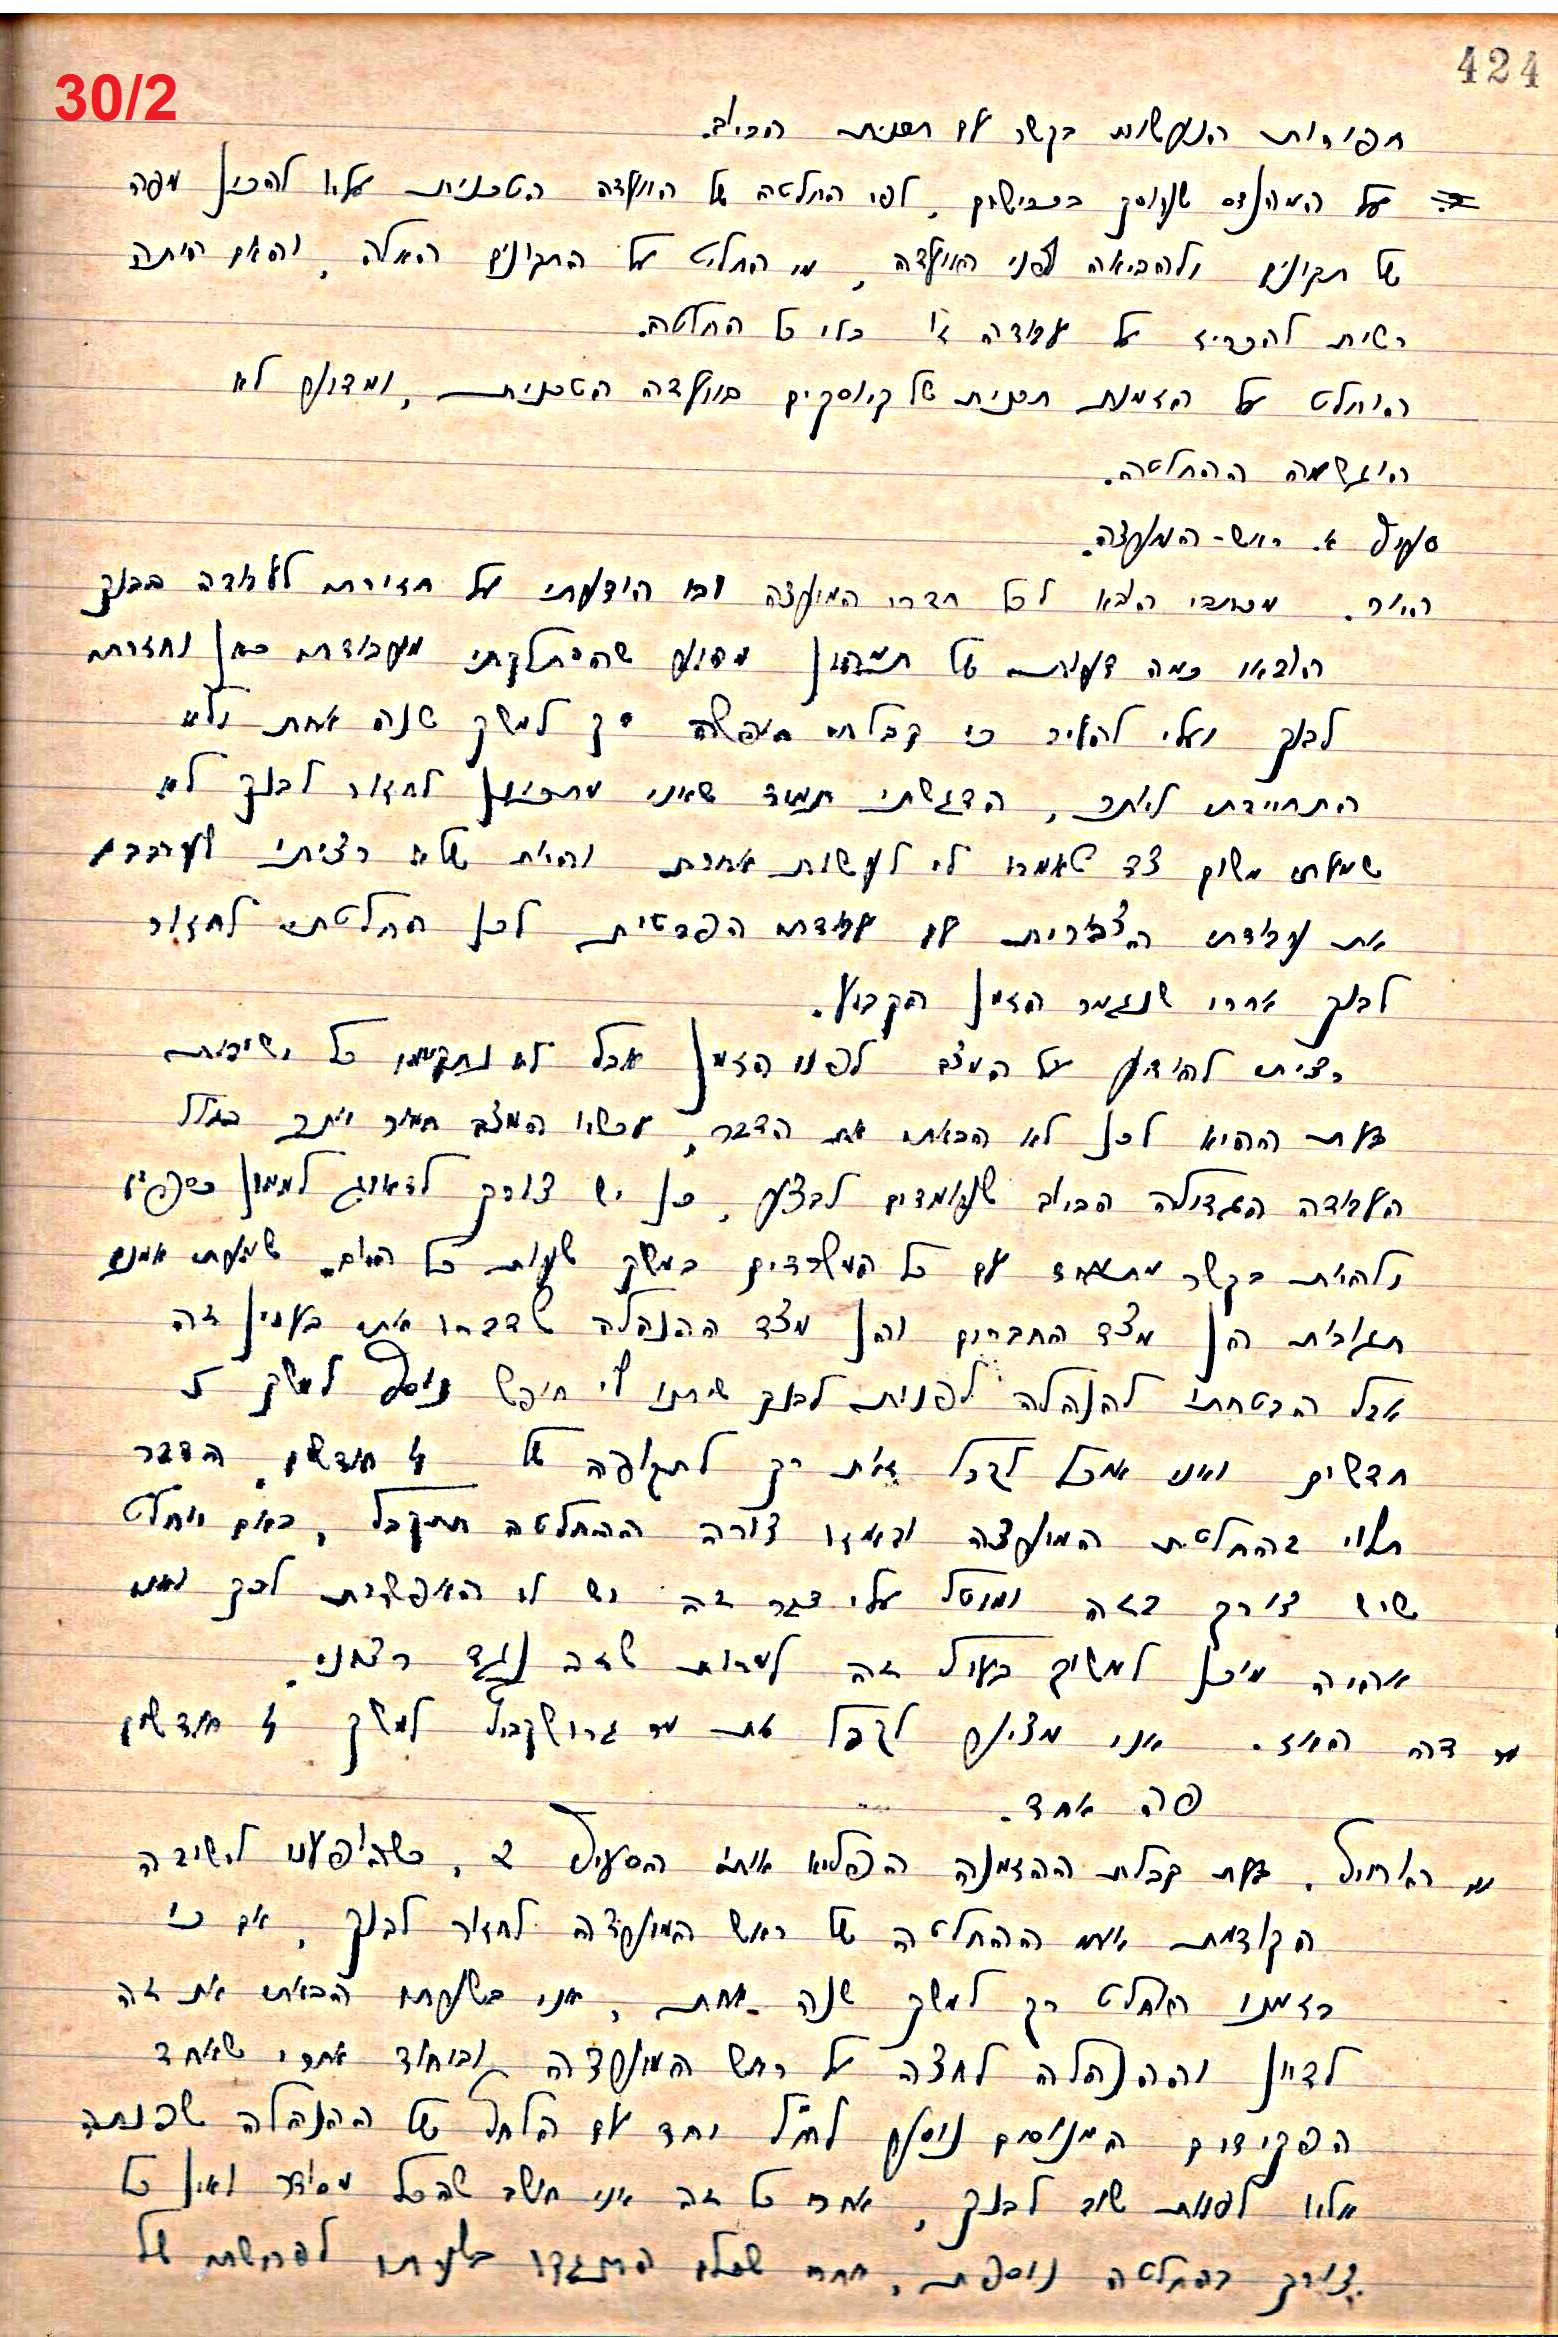 424
30/2
חפירות הנעשות בקשר עם תכנית הביוב.
על המהנדס שעוסק בכבישים, לפי החלטה של הוועדה הטכנית עליו להכין מפה
של תקונים ולהביאה לפני הוועדה, מי החליט על התקונים האלה, והאם היתה
רשות להכריז על עבודה זו בלי כל החלטה.
הוחלט על הזמנת תכנית של קיוסקים בוועדה הטכנית, ומדוע לא
הוגשמה ההחלטה.
סעיף א. ראש-המועצה.
היור. מכתבי הובא לכל חברי המועצה ובו הודעתי על חזירתי לעבודה בבנק
הובאו כמה דעות של תמהון מדוע שהסתלקתי מעבודתי כאן וחזרתי
לבנק ועלי להעיר כי קבלתי חופשה רק למשך שנה אחת ולא
התחייבתי ליותר, הדגשתי תמיד שאיני מתכוון לחזור לבנק לא
שמעתי משום צד שאמרו לי לעשות אחרת והיות שלא רציתי לערבב
את עבודתי הצבורית עם עבודתי הפרטית לכן החלטתי לחזור
לבנק אחרי שנגמר הזמן הקבוע.
רציתי להודיע על המצב לפני הזמן אבל לא נתקיימו כל ישיבות
בעת ההיא לכן לא הבאתי את הדבר, עכשיו המצב חמור יותר בגלל
העבודה הגדולה הביוב שעומדים לבצע, כן יש צורך לדאוג למימון כספי
ולהיות בקשר מתמיד עם כל המשרדים במשך שעות כל היום. שמעתי אמנם
תגובות הן מצד החברים והן מצד ההנהלה שדברו אתי בענין זה
אבל הבטחתי להנהלה לפנות לבנק שיתנו לי חופש נוסף למשך
חדשים ואני אוכל לקבל זאת רק לתקופה של חודשים. הדבר
תלוי בהחלטת המועצה ובאיזו צורה ההחלטה תתקבל, באם יוחלט
שיש צורך בזה ומוטל עלי דבר זה יש לי האפשרות לכך ואני
אהיה מוכן למשוך בעול זה למרות שזה נגד רצוני.
מר דה האוז. אני מציע לקבל את מר גרושקביץ למשך חודשים
פה אחד.
מר הארוויל. בעת קבלת ההזמנה הפליא אותי הסעיף, כשהופענו לישיבה
הקודמת אתמו ההחלטה של ראש המועצה לחזור לבנק, אם כי
בזמנו הוחלט רק למשך שנה אחת, אני בשעתו הבאתי את זה
לדיון וההנהלה לחצה על ראש המועצה ובייחוד אחרי שאחד
הפקידים המנוסים נוסע לחו"ל יחד עם הלחץ של ההנהלה שפנתה
אליו לפנות שוב לבנק, אחרי כל זה אני חושב שהכל מסודר ואין כל
צורך בהחלטה נוספת, אחרי שכולם התנגדו בשעתו לפרישתו של